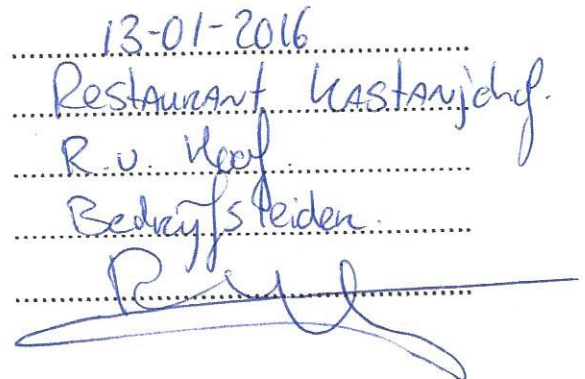 13-01-2016
Restaurant Kastanjehof.
R.v.
Bedrijfsleider.